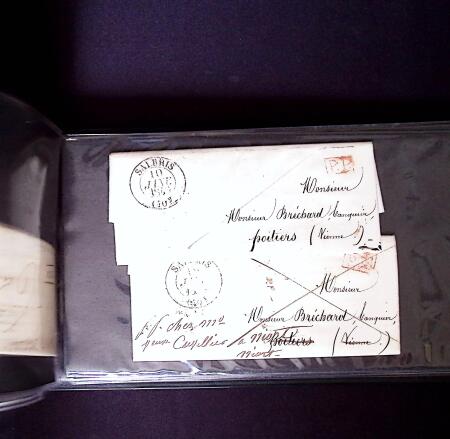 SALBRIS
10
(40)
P.P.
Monsieur
Monsieur Brichard banquier
poitiers (Vienne)
SALBRIS
Monsieur
Monsieur Brichard banquier
poitiers (Vienne)
chez Md
veuve Cuvillier a niort
niort